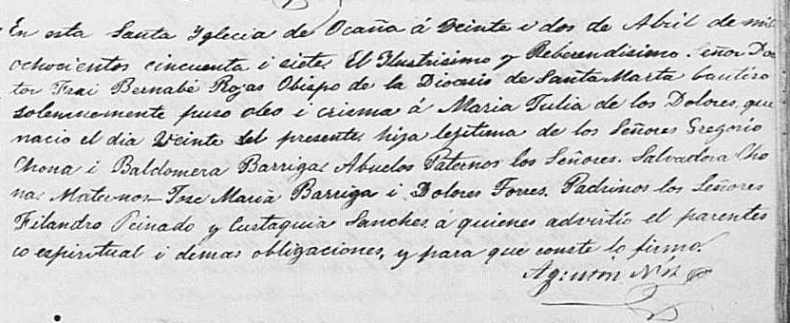 En esta Santa Yglecia de Ocaña á Veinte i dos de Abril de mil
ochocientos cincuenta i siete, El Ilustrisimo y Reberendisimo Señor Doc
tor Frai Bernabé Rojas Obispo de la Diocesis de Santa Marta bautizo
solennomente puso oleo i crisma á Maria Julia de los Dolores, que
nacio el dia Veinte del presente, hija lejitima de los Señores Gregorio
Chona i Baldomera Barriga, Abuelos Paternos los Señores. Salvadora Cho
na, Maternos Jose Maria Barriga i Dolores Torres, Padrinos los Señores
Filandro Peinado y Eustaquia Sanches, á quienes advirtio el parentes
co espiritual i demas obligaciones, y para que conste lo firmo.
Agustin